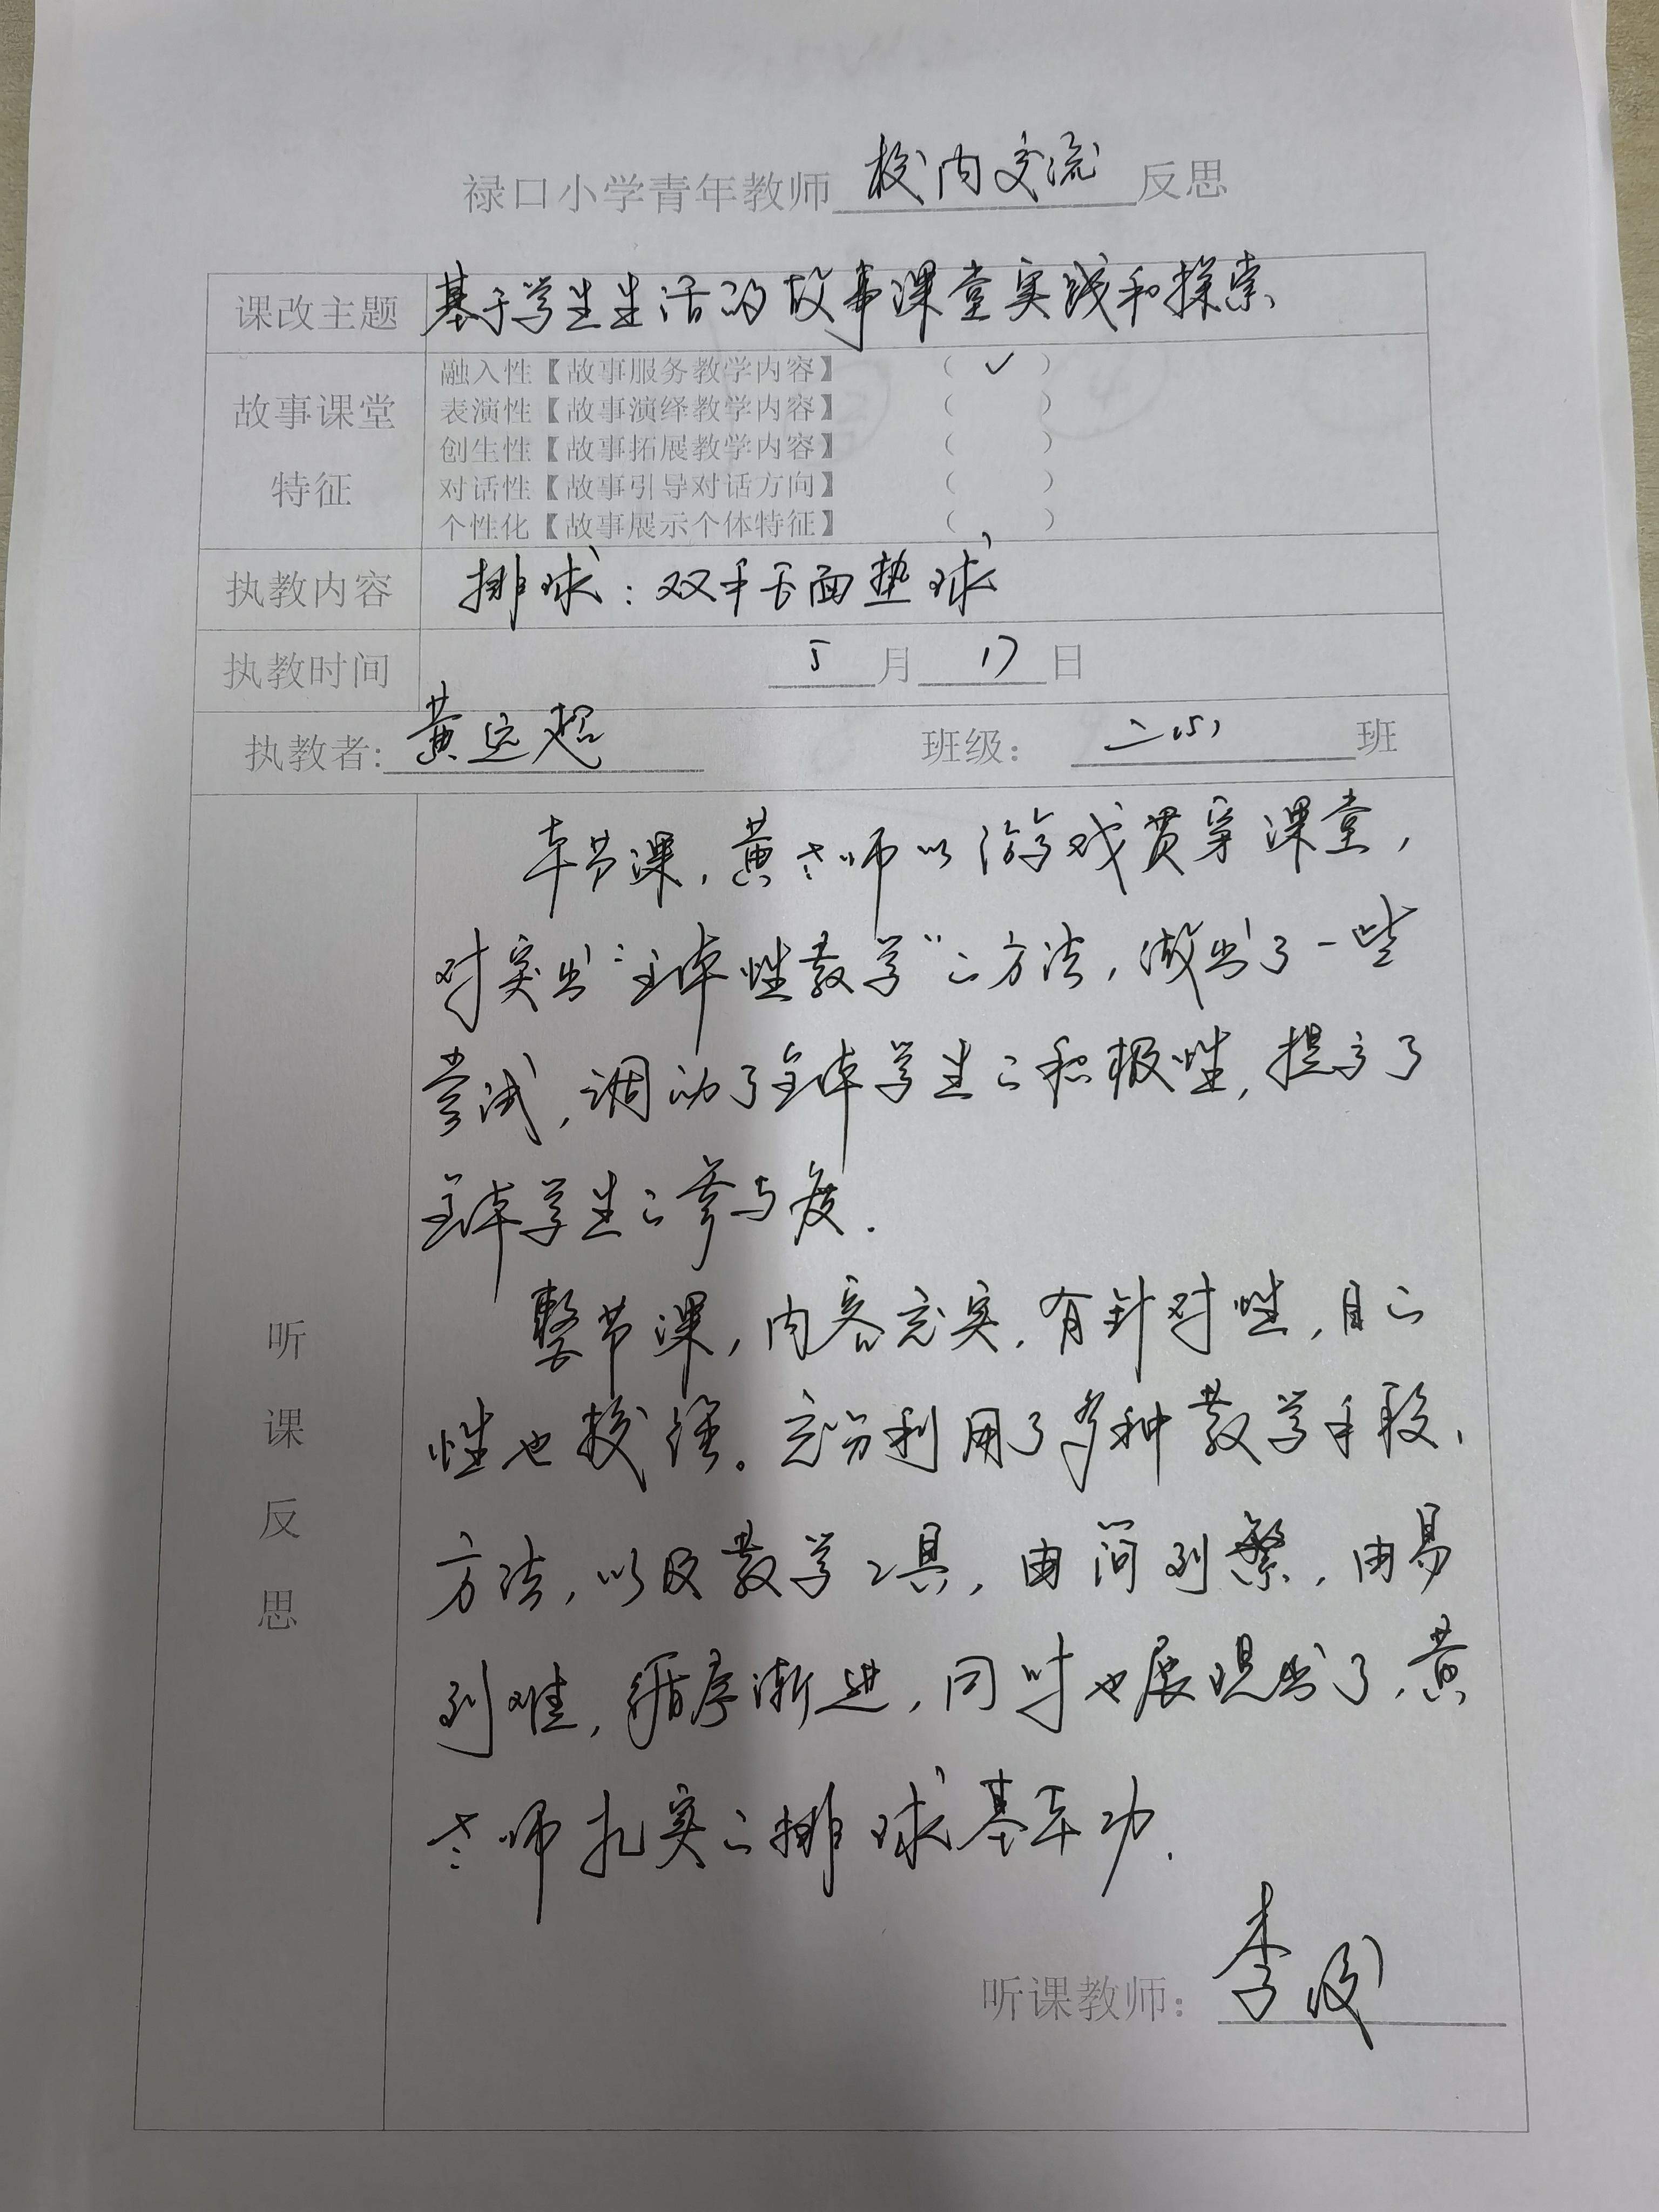 禄口小学青年教师 校内交流 反思
课改主题 基于学生生活的故事课堂实践和探索
故事课堂特征
融入性【故事服务教学内容】 （ ✓ ）
表演性【故事演绎教学内容】 （ ）
创生性【故事拓展教学内容】 （ ）
对话性【故事引导对话方向】 （ ）
个性化【故事展示个体特征】 （ ）
执教内容 排球：双手正面垫球
执教时间 5 月 17 日
执教者: 黄远超 班级： 二（5） 班
听课反思
本节课，黄老师以游戏贯穿课堂，
对突出“主体性教学”的方法，做出了一些
尝试，调动了全体学生的积极性，提高了
全体学生的参与度.
整节课，内容充实，有针对性，目的
性也较强。充分利用了多种教学手段、
方法，以及教学工具，由简到繁，由易
到难，循序渐进，同时也展现出了，黄
老师扎实的排球基本功.
听课教师： 李